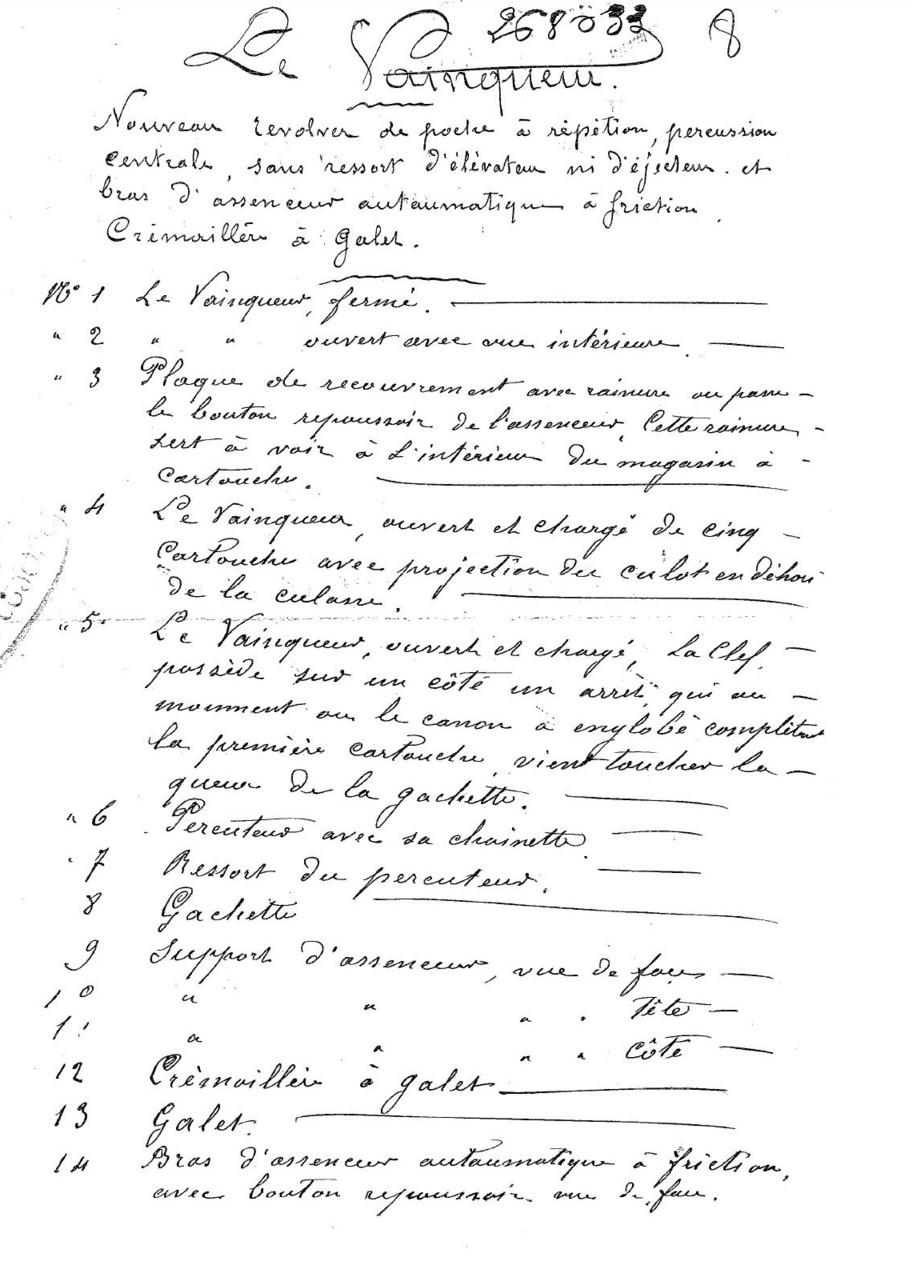 268033 8
Le Vainqueur.
Nouveau revolver de poche à répétion, percussion
centrale, sans ressort d'élévateur ni d'éjecteur. et
bras d'assenceur autaumatique à friction.
Crémaillère à Galet.
N° 1 Le Vainqueur, fermé.
" 2 " " ouvert avec vue intérieure.
" 3 Plaque de recouvrement avec rainure ou passe
le bouton repoussoir de l'assenceur, Cette rainure,
sert à voir à L'intérieur du magasin à
Cartouche.
" 4 Le Vainqueur, ouvert et chargé de cinq
Cartouche avec projection du culot en déhors
de la culasse.
" 5 Le Vainqueur, ouvert et chargé, La Clef,
possède sur un côté un arrèt, qui au
momment ou le canon à englobé complètmt
la première cartouche, vient toucher la
queue de la gachette.
" 6 Percuteur avec sa chainette.
" 7 Ressort du percuteur.
8 Gachette
9 Support d'assenceur, vue de face
10 " " " " Tête
11 " " " " Côté
12 Crèmaillère à galet
13 Galet.
14 Bras d'assenceur autaumatique à friction,
avec bouton repoussoir vue de face.